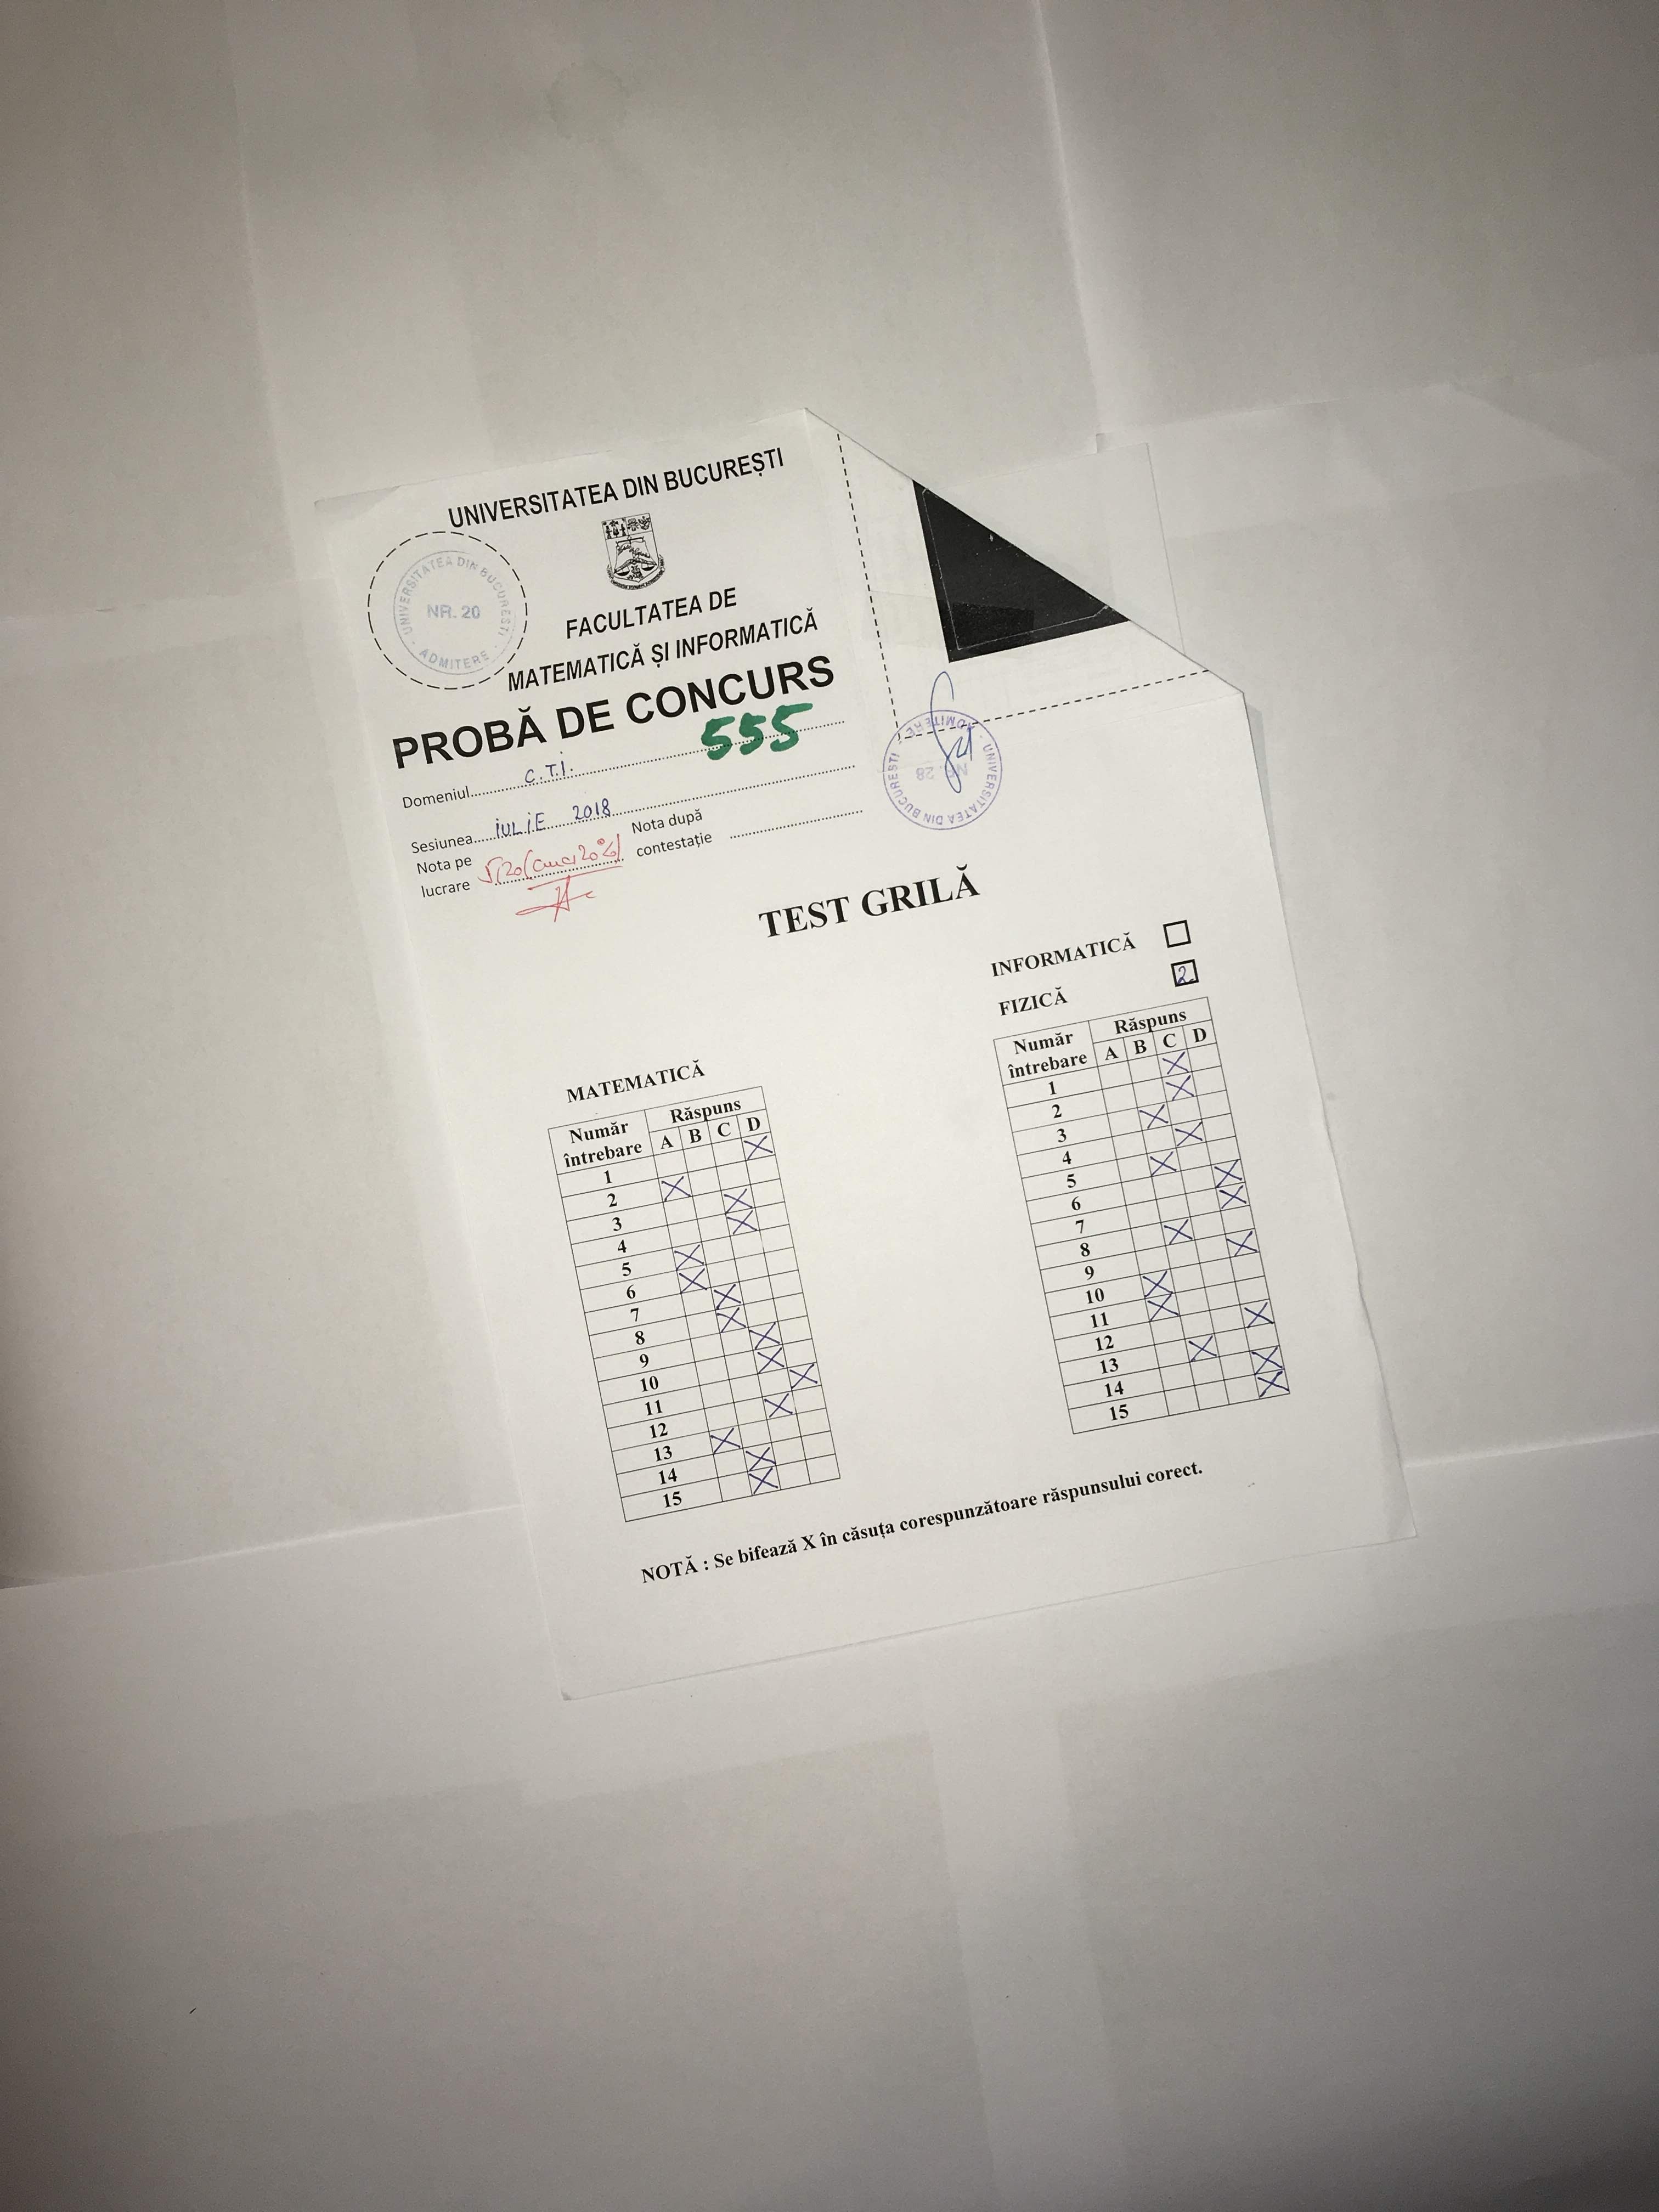 UNIVERSITATEA DIN BUCUREȘTI
UNIVERSITATEA DIN BUCUREȘTI
NR. 20
ADMITERE
FACULTATEA DE
MATEMATICĂ ȘI INFORMATICĂ
PROBĂ DE CONCURS
555
Domeniul C.T.I.
Sesiunea IULIE 2018
Nota pe lucrare 5,20 (cinci 20%)
Nota după contestație
UNIVERSITATEA DIN BUCUREȘTI
NR. 28
ADMITERE
TEST GRILĂ
INFORMATICĂ
FIZICĂ 2
MATEMATICĂ
Număr întrebare Răspuns
A B C D
1 X
2 X
3 X
4 X
5 X
6 X
7 X
8 X
9 X
10 X
11 X
12 X
13 X
14 X
15 X
Număr întrebare Răspuns
A B C D
1 X
2 X
3 X
4 X
5 X
6 X
7 X
8 X
9 X
10 X
11 X
12 X
13 X
14 X
15 X
NOTĂ : Se bifează X în căsuța corespunzătoare răspunsului corect.